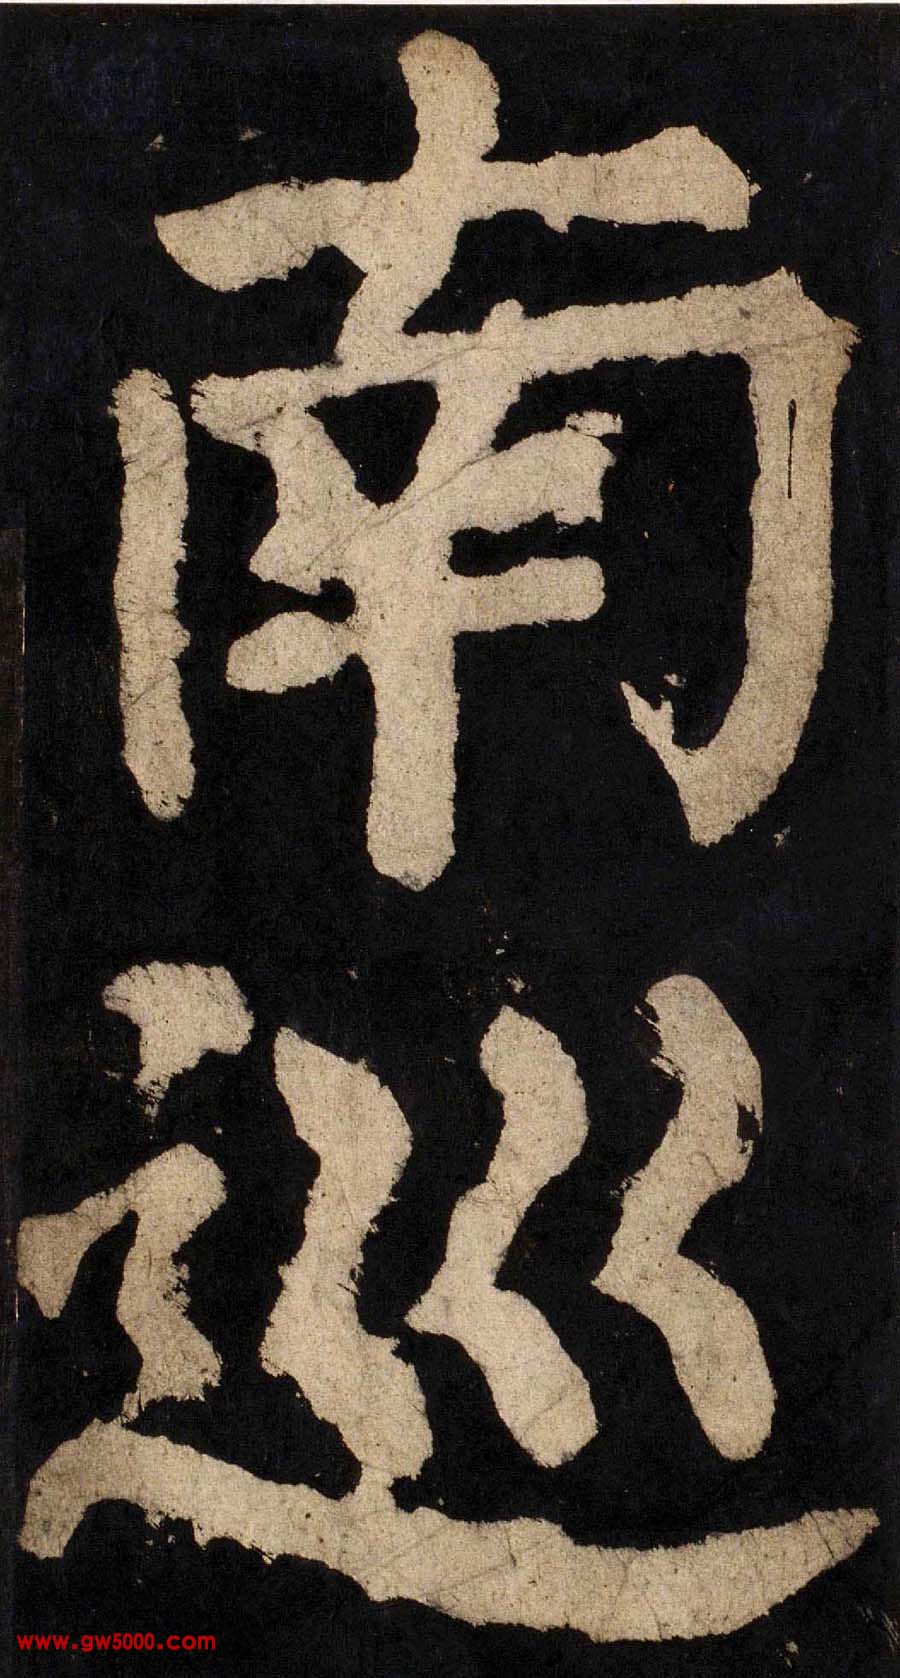 南
巡
www.gw5000.com